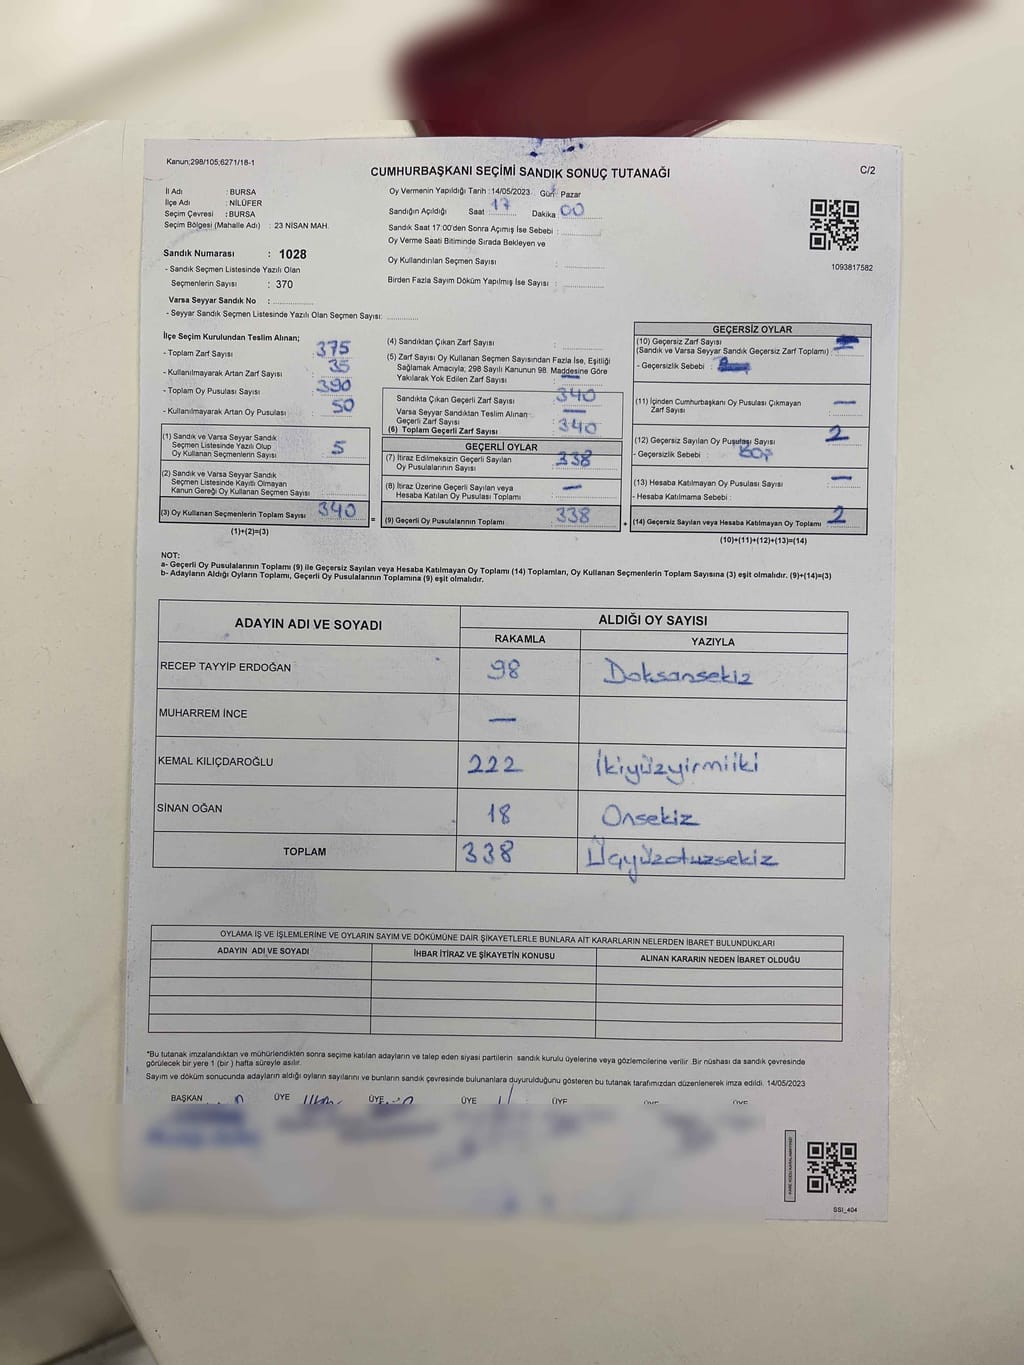 Kanun;298/105,6271/18-1
CUMHURBAŞKANI SEÇİMİ SANDIK SONUÇ TUTANAĞI
C/2
İl Adı : BURSA
İlçe Adı : NİLÜFER
Seçim Çevresi : BURSA
Seçim Bölgesi (Mahalle Adı) : 23 NİSAN MAH.
Sandık Numarası : 1028
- Sandık Seçmen Listesinde Yazılı Olan
Seçmenlerin Sayısı : 370
Varsa Seyyar Sandık No :
- Seyyar Sandık Seçmen Listesinde Yazılı Olan Seçmen Sayısı:
Oy Vermenin Yapıldığı Tarih : 14/05/2023 Gün: Pazar
Sandığın Açıldığı Saat 17 Dakika : 00
Sandık Saat 17:00'den Sonra Açımış İse Sebebi :
Oy Verme Saati Bitiminde Sırada Bekleyen ve
Oy Kullandırılan Seçmen Sayısı :
Birden Fazla Sayım Döküm Yapılmış İse Sayısı :
1093817582
İlçe Seçim Kurulundan Teslim Alınan;
- Toplam Zarf Sayısı : 375
- Kullanılmayarak Artan Zarf Sayısı : 35
- Toplam Oy Pusulası Sayısı : 390
- Kullanılmayarak Artan Oy Pusulası : 50
(1) Sandık ve Varsa Seyyar Sandık
Seçmen Listesinde Yazılı Olup
Oy Kullanan Seçmenlerin Sayısı : 5
(2) Sandık ve Varsa Seyyar Sandık
Seçmen Listesinde Kayıtlı Olmayan
Kanun Gereği Oy Kullanan Seçmen Sayısı :
(3) Oy Kullanan Seçmenlerin Toplam Sayısı : 340
(1)+(2)=(3)
=
(4) Sandıktan Çıkan Zarf Sayısı :
(5) Zarf Sayısı Oy Kullanan Seçmen Sayısından Fazla İse, Eşitliği
Sağlamak Amacıyla; 298 Sayılı Kanunun 98. Maddesine Göre
Yakılarak Yok Edilen Zarf Sayısı : —
Sandıkta Çıkan Geçerli Zarf Sayısı : 340
Varsa Seyyar Sandıktan Teslim Alınan
Geçerli Zarf Sayısı : —
(6) Toplam Geçerli Zarf Sayısı : 340
GEÇERLİ OYLAR
(7) İtiraz Edilmeksizin Geçerli Sayılan
Oy Pusulalarının Sayısı : 338
(8) İtiraz Üzerine Geçerli Sayılan veya
Hesaba Katılan Oy Pusulası Toplamı : —
(9) Geçerli Oy Pusulalarının Toplamı : 338
+
GEÇERSİZ OYLAR
(10) Geçersiz Zarf Sayısı
(Sandık ve Varsa Seyyar Sandık Geçersiz Zarf Toplamı) :
- Geçersizlik Sebebi :
(11) İçinden Cumhurbaşkanı Oy Pusulası Çıkmayan
Zarf Sayısı : —
(12) Geçersiz Sayılan Oy Pusulası Sayısı : 2
- Geçersizlik Sebebi : Boş
(13) Hesaba Katılmayan Oy Sayısı : —
- Hesaba Katılmama Sebebi :
(14) Geçersiz Sayılan veya Hesaba Katılmayan Oy Toplamı : 2
(10)+(11)+(12)+(13)=(14)
NOT:
a- Geçerli Oy Pusulalarının Toplamı (9) ile Geçersiz Sayılan veya Hesaba Katılmayan Oy Toplamı (14) Toplamları, Oy Kullanan Seçmenlerin Toplam Sayısına (3) eşit olmalıdır. (9)+(14)=(3)
b- Adayların Aldığı Oyların Toplamı, Geçerli Oy Pusulalarının Toplamına (9) eşit olmalıdır.
ADAYIN ADI VE SOYADI
ALDIĞI OY SAYISI
RAKAMLA YAZIYLA
RECEP TAYYİP ERDOĞAN 98 Doksansekiz
MUHARREM İNCE —
KEMAL KILIÇDAROĞLU 222 İkiyüzyirmiiki
SİNAN OĞAN 18 Onsekiz
TOPLAM 338 Üçyüzotuzsekiz
OYLAMA İŞ VE İŞLEMLERİNE VE OYLARIN SAYIM VE DÖKÜMÜNE DAİR ŞİKAYETLERLE BUNLARA AİT KARARLARIN NELERDEN İBARET BULUNDUKLARI
ADAYIN ADI VE SOYADI İHBAR İTİRAZ VE ŞİKAYETİN KONUSU ALINAN KARARIN NEDEN İBARET OLDUĞU
*Bu tutanak imzalandıktan ve mühürlendikten sonra seçime katılan adayların ve talep eden siyasi partilerin sandık kurulu üyelerine veya gözlemcilerine verilir .Bir nüshası da sandık çevresinde
görülecek bir yere 1 (bir) hafta süreyle asılır.
Sayım ve döküm sonucunda adayların aldığı oyların sayılarını ve bunların sandık çevresinde bulunanlara duyurulduğunu gösteren bu tutanak tarafımızdan düzenlenerek imza edildi. 14/05/2023
BAŞKAN ÜYE ÜYE ÜYE ÜYE ÜYE ÜYE
SSI_404